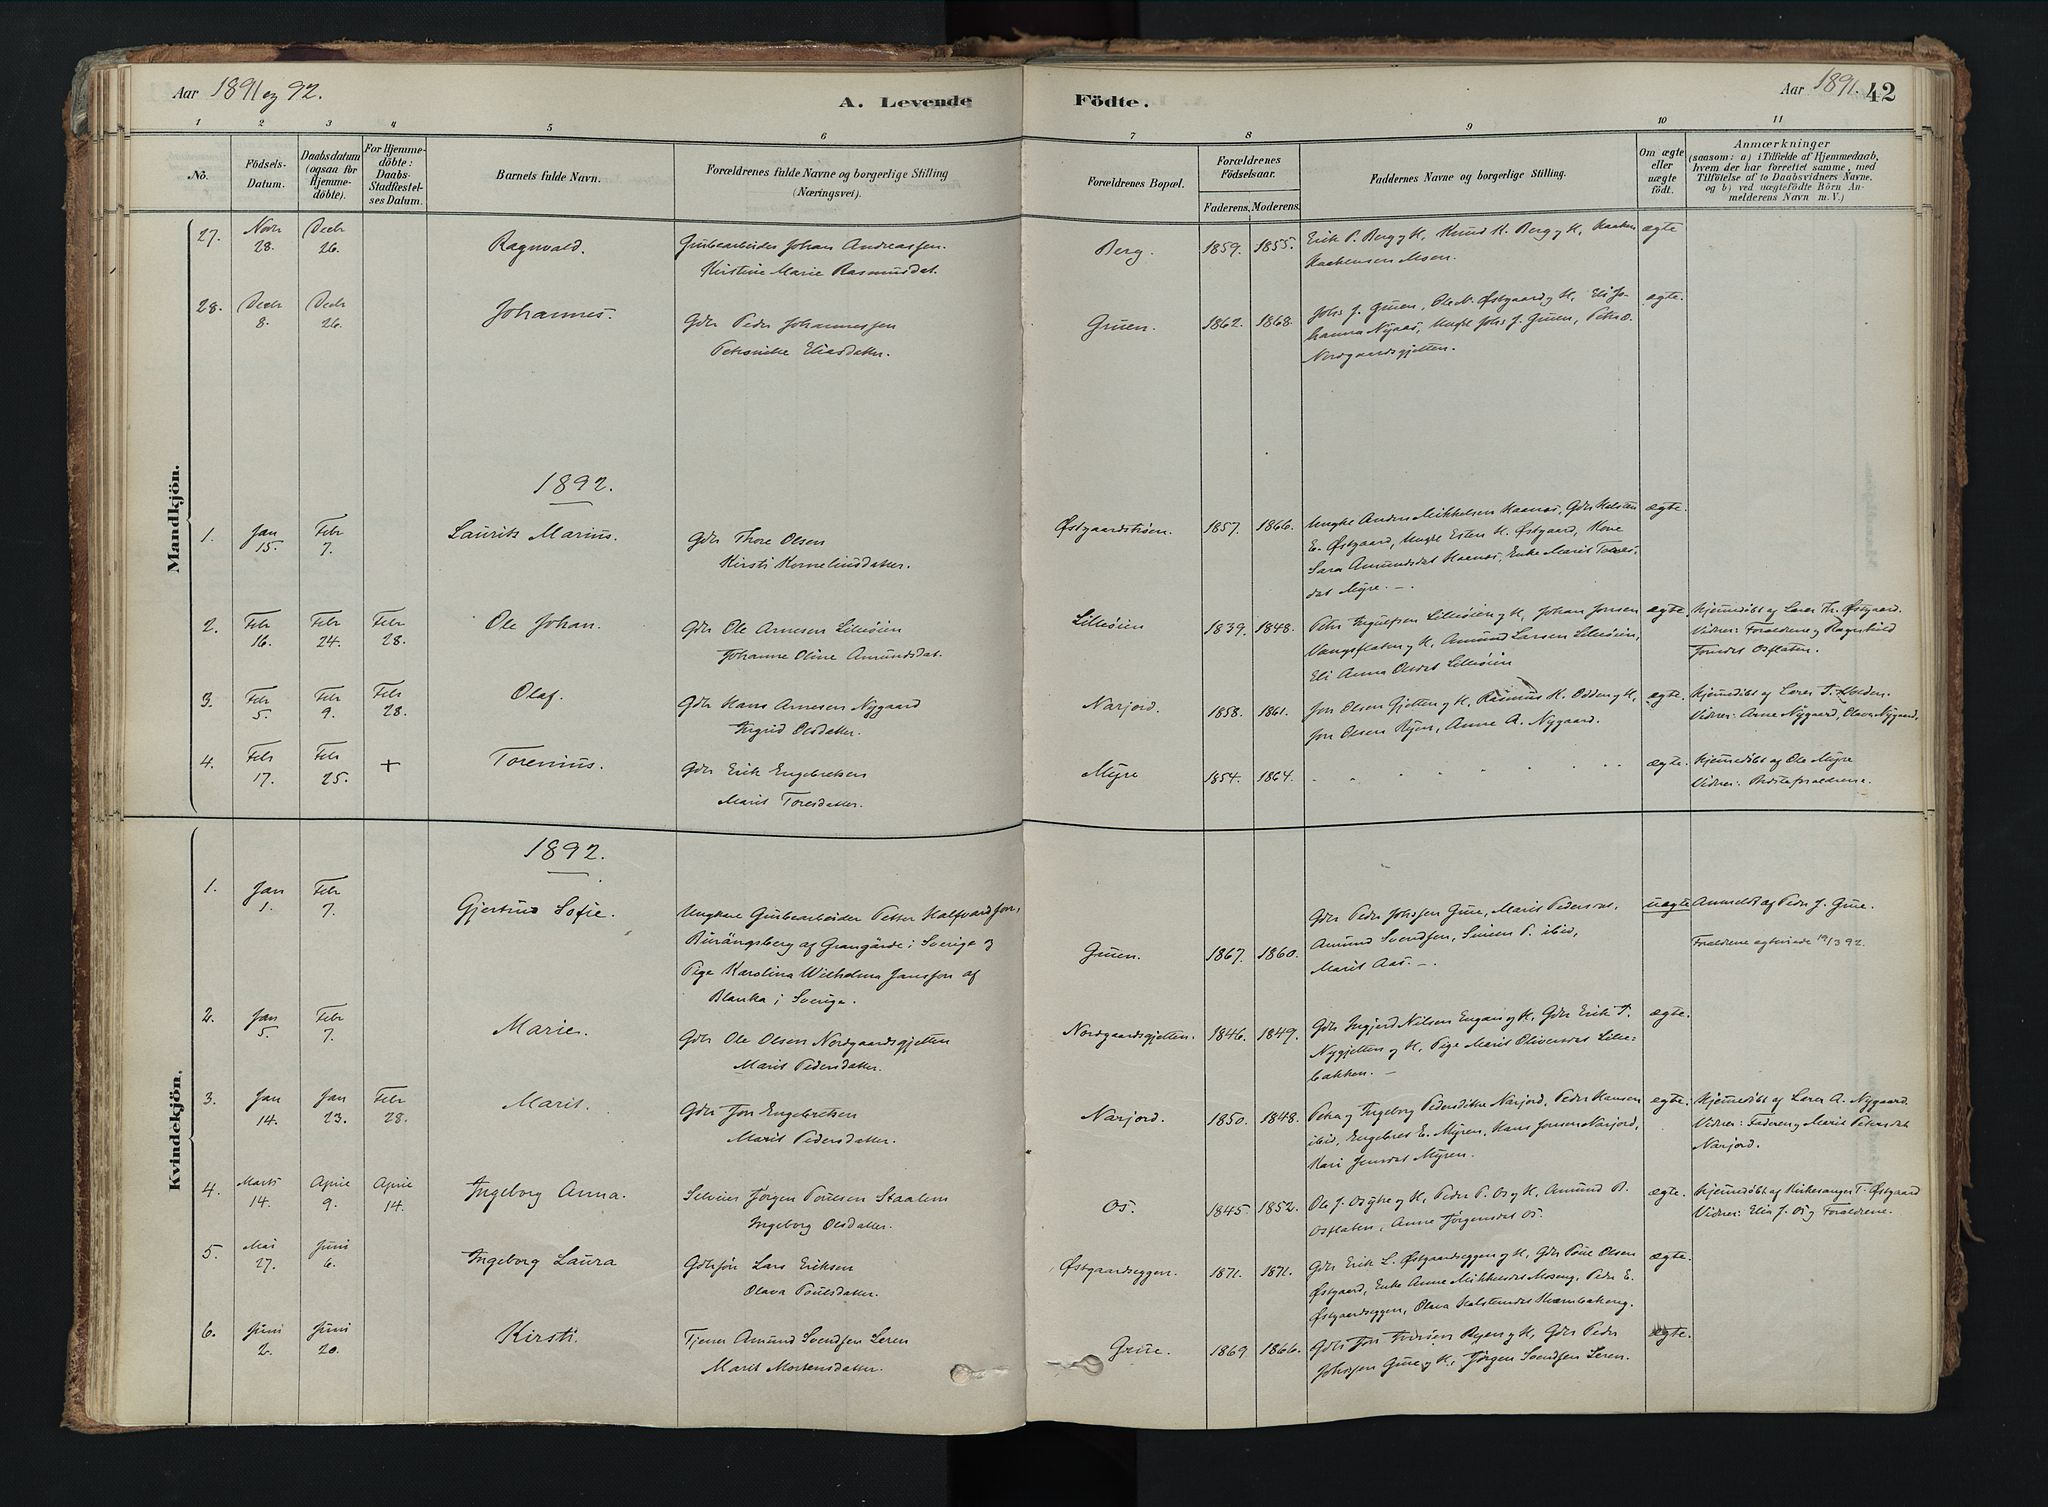 Aar 1891 og 92.
A. Levende
Födte.
Aar 1891.
42
1 2 3 4 5 6 7 8 9 10 11
No.
Födsels-
Datum.
Daabsdatum
(ogsaa for
Hjemme-
döbte).
For Hjemme-
döbte:
Daabs-
Stadfæstel-
ses Datum.
Barnets fulde Navn.
Forældrenes fulde Navne og borgerlige Stilling
(Næringsvei).
Forældrenes Bopæl.
Forældrenes
Födselsaar.
Faderens. Moderens.
Faddernes Navne og borgerlige Stilling.
Om ægte
eller
uægte
födt.
Anmærkninger
(saasom: a) i Tilfælde af Hjemmedaab,
hvem der har forrettet samme, med
Tilföielse af to Daabsvidners Navne,
og b) ved uægtefödte Börn An-
melderens Navn m. V.)
Mandkjön.
27. Novbr 28. Decbr 26. Ragnvald. Grubearbeider Johan Andreassen.
Kirstine Marie Rasmusdat.
Berg. 1859. 1855. Erik P. Berg og H, Knud K. Berg og H, Haaken
Haakensen Moen.
ægte
28. Decbr 8. Decbr 26. Johannes. Gdbr Peder Johannessen
Petronike Eliasdatter.
Gruen. 1862. 1868. Johs J. Gruen, Ole N. Østgaard og H, Eli Jo-
hanna Nyaas, Ungkl Johs J. Gruen, Peter O.
Nordgaardsgjetten.
ægte.
1892.
1. Jan 15. Febr 7. Laurits Marius. Gdbr Thore Olsen
Kirsti Korneliusdatter.
Østgaardstrøen. 1857. 1866. Ungke Anders Mikkelsen Haanæs, Gdbr Halsten
E. Østgaard, Ungke Esten H. Østgaard, Kone
Sara Amundsdat Haanæs, Enke Marit Tores-
dat Myre. —.
ægte.
2. Febr 16. Febr 24. Febr 28. Ole Johan. Gdbr Ole Arnesen Lilleøien
Johanne Oline Amundsdat.
Lilleøien 1839. 1848. Peter Ingulfsen Lilleøien og H, Johan Jonsen
Vangsflaten og H, Amund Larsen Lilleøien,
Eli Anna Olsdat Lilleøien
ægte Hjemmedøbt af Lærer Th. Østgaard.
Vidner: Forældrene og Ragnhild
Jonsdat Osflaten.
3. Febr 5. Febr 9. Febr 28. Olaf. Gdbr Hans Arnesen Nygaard
Ingrid Olsdatter.
Narjord. 1858. 1861. Jon Olsen Gjetten og H, Rasmus H. Odden og H,
Jon Olsen Ryen, Anne A. Nygaard.
ægte. Hjemmedøbt af Lærer T. Holden.
Vidner: Arne Nygaard, Olava Nygaard.
4. Febr 17. Febr 25. + Torenius. Gdbr Erik Engebretsen
Marit Toresdatter.
Myre 1854. 1864. ægte. Hjemmedøbt af Ole Myre
Vidner: Bedsteforældrene.
Kvindekjön.
1892.
1. Jan 1. Febr 7. Gjertrud Sofie. Ungkarl Grubearbeider Petter Halfvardson,
Burängsberg af Grangärde i Sverige og
Pige Karolina Wilhelmina Jansson af
Blanka i Sverige.
Gruen. 1867. 1860. Gdbr Peder Johssen Grue, Marit Pedersdat,
Amund Svendsen, Simen P. ibid,
Marit Aas. —.
uægte Anmeldt af Peder J. Grue.
Forældrene ægteviede 19/3 92.
2. Jan 5. Febr 7. Marie. Gdbr Ole Olsen Nordgaardsgjetten
Marit Pedersdatter.
Nordgaardsgjetten. 1846. 1849. Gdbr Ingjerd Nilsen Engan og H, Gdbr Erik T.
Nygjetten og H, Pige Marit Oliversdat Lille-
bakken. —
ægte.
3. Jan 14. Jan 23. Febr 28. Marit. Gdbr Jon Engebretsen
Marit Pedersdatter.
Narjord. 1850. 1848. Petra og Ingeborg Pedersdøtre Narjord, Peder Hansen
ibid, Engebret E. Myren, Hans Jonsen Narjord,
Kari Jonsdat Myren.
ægte. Hjemmedøbt af Lærer A. Nygaard.
Vidner: Faderen og Marit Petersdat
Narjord.
4. Marts 14. April 9. April 14. Ingeborg Anna. Selveier Jørgen Poulsen Staalem
Ingeborg Olsdatter.
Os. 1845. 1852. Ole J. Osgtre og H, Peder P. Os og H, Amund B.
Osflaten, Anne Jørgensdat Os.
ægte. Hjemmedøbt af Kirkesanger T. Østgaard
Vidner: Elia J. Os og Forældrene.
5. Mai 27. Juni 6. Ingeborg Laura Gdbrsøn Lars Eriksen
Olava Poulsdatter.
Østgaardseggen. 1871. 1871. Gdbr Erik L. Østgaardseggen og H, Gdbr Poul Olsen
Østgaard, Enke Anne Mikkelsdat Moseng, Peder E.
Østgaardseggen, Olava Halstensdat Kvernbakeng.
ægte.
6. Juni 2. Juni 20. Kirsti. Tjener Amund Svendsen Leren
Marit Mortensdatter.
Grue. 1869 1866. Gdbr Jon Iversen Ryen og H, Gdbr Peder
Johssen Grue og H, Jørgen Svendsen Leren.
ægte.